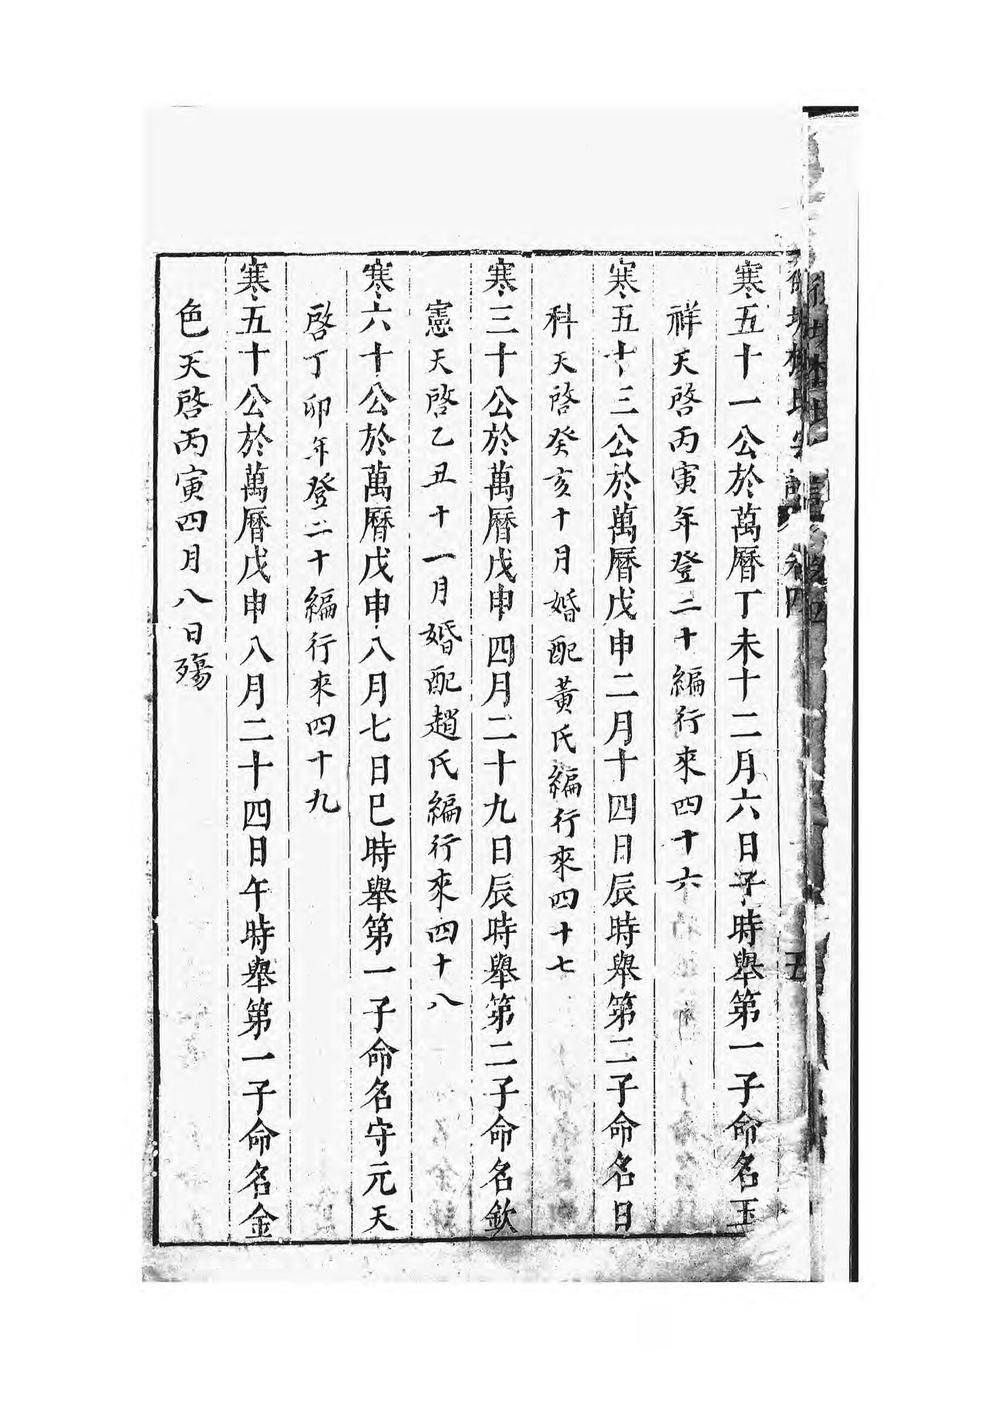 寒五十一公於萬曆丁未十二月六日子時舉第一子命名玉
祥天啓丙寅年登二十編行來四十六
寒五十三公於萬曆戊申二月十四日辰時舉第二子命名日
科天啓癸亥十月婚配黃氏編行來四十七
寒三十公於萬曆戊申四月二十九日辰時舉第二子命名欽
憲天啓乙丑十一月婚配趙氏編行來四十八
寒六十公於萬曆戊申八月七日巳時舉第一子命名守元天
啓丁卯年登二十編行來四十九
寒五十公於萬曆戊申八月二十四日午時舉第一子命名金
色天啓丙寅四月八日殤